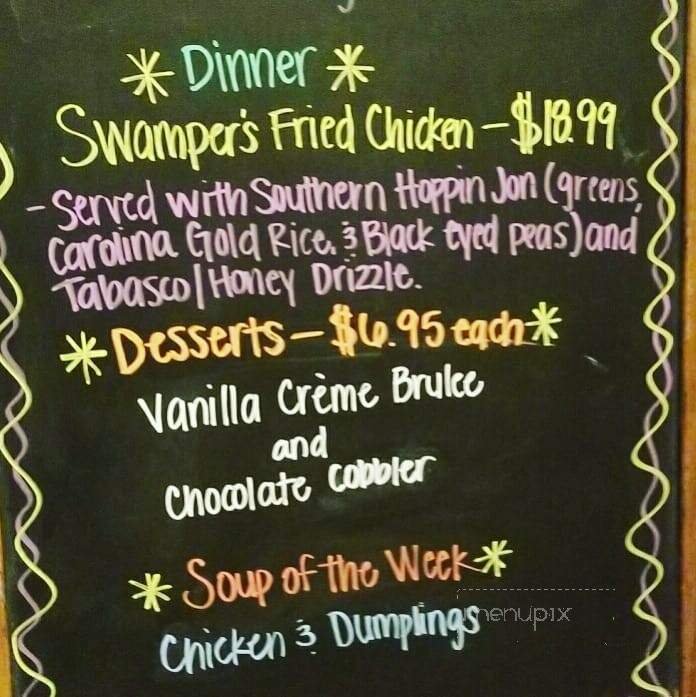 * Dinner *
Swamper's Fried Chicken - $18.99
- Served with Southern Hoppin Jon (greens,
Carolina Gold Rice, & Black eyed peas) and
Tabasco/Honey Drizzle.
* Desserts - $6.95 each *
Vanilla Crème Brulee
and
Chocolate Cobbler
* Soup of the Week *
menupix
Chicken & Dumplings